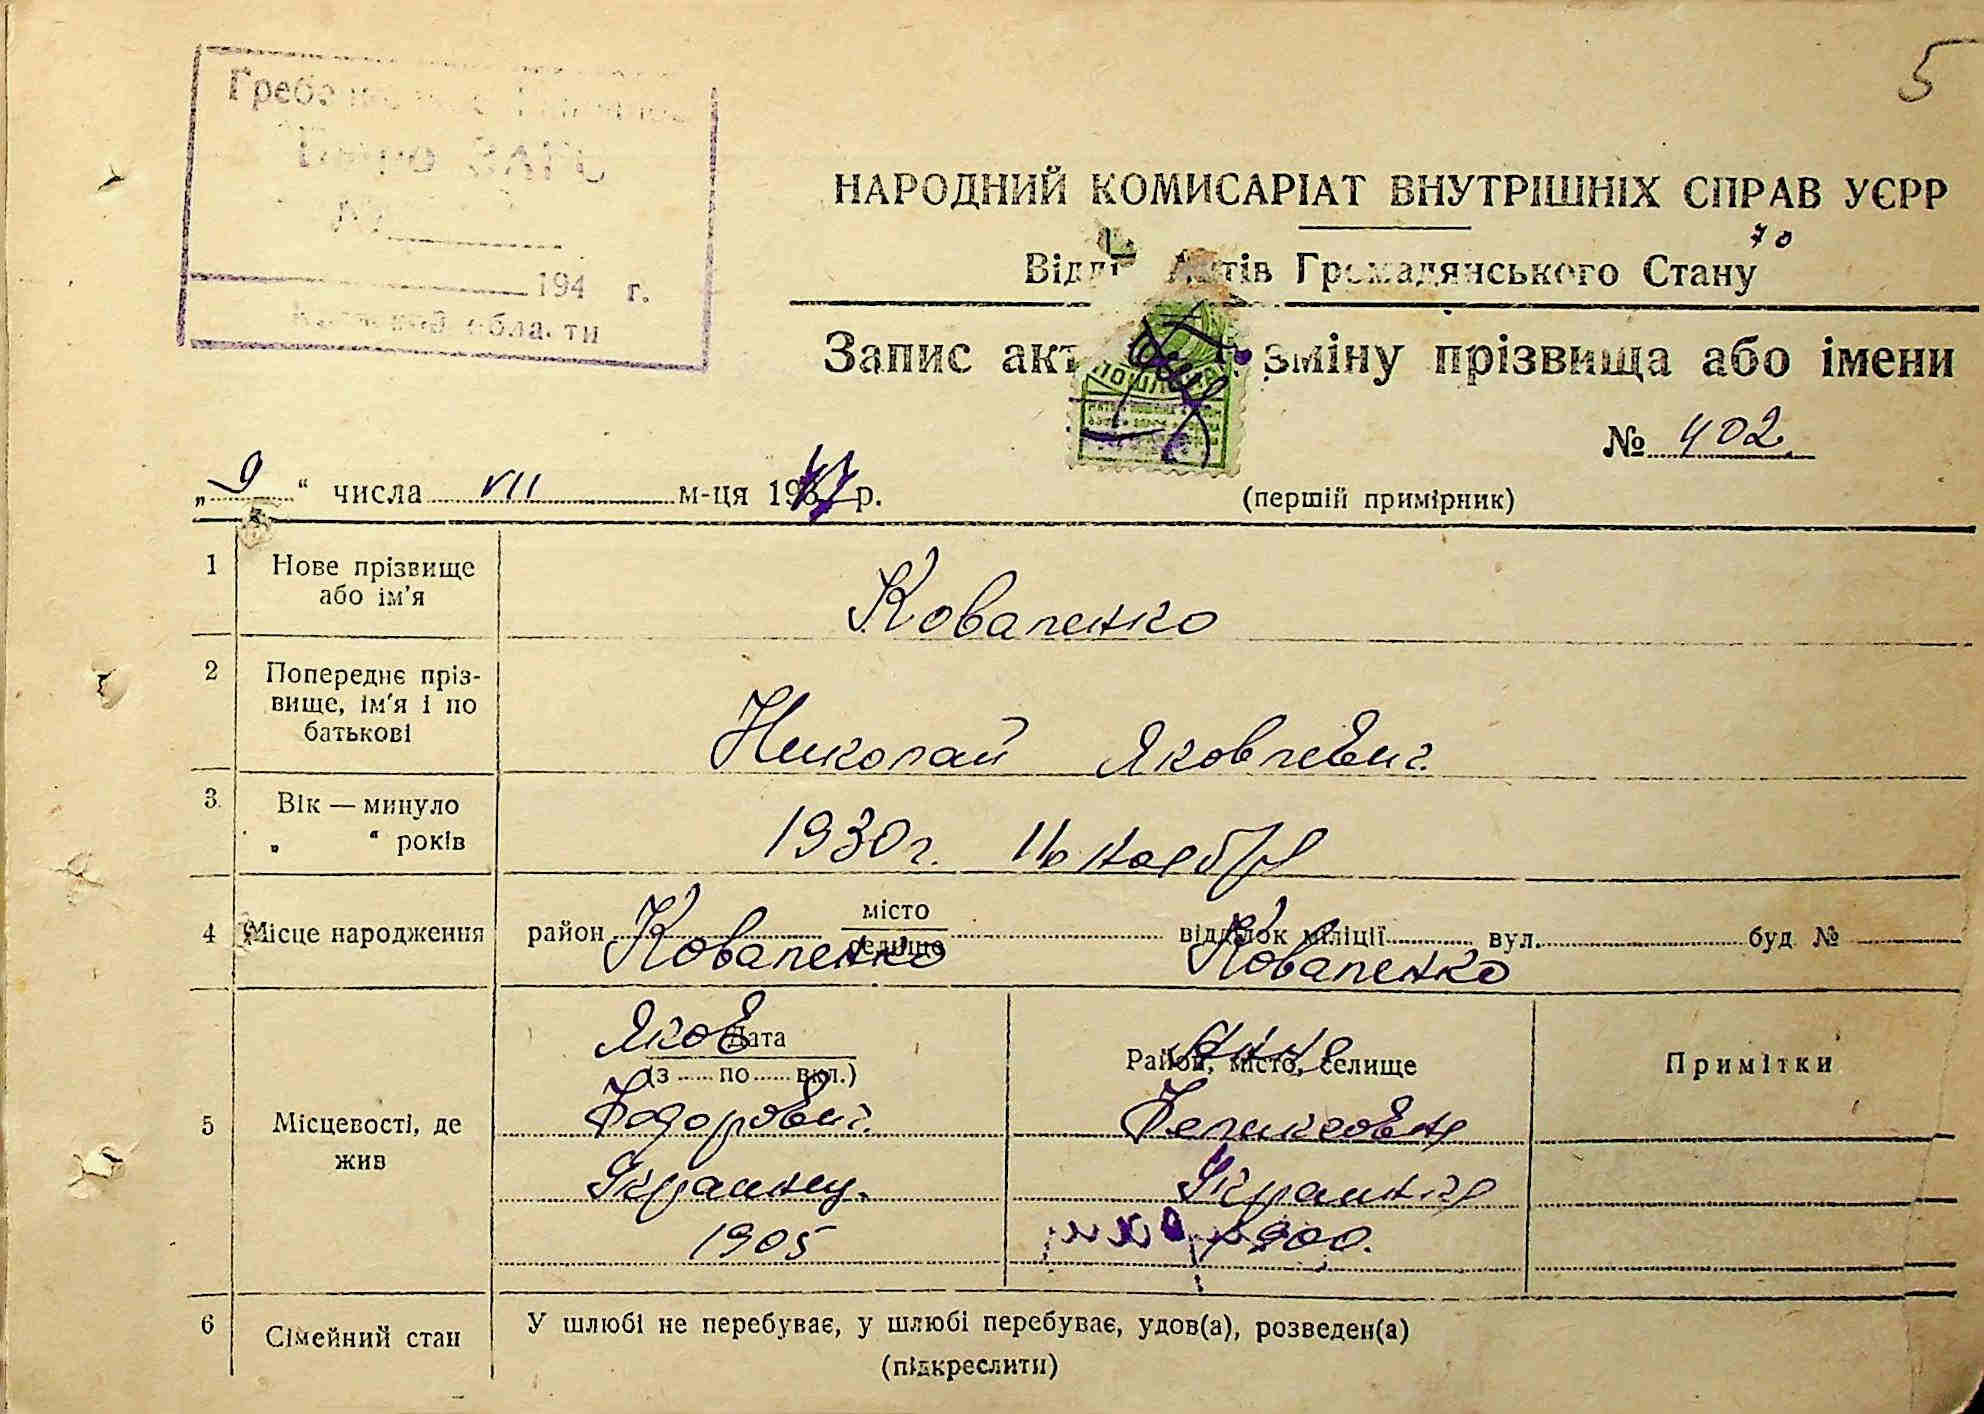 5
Бюро ЗАГС
№
194 г.
области
НАРОДНИЙ КОМИСАРІАТ ВНУТРІШНІХ СПРАВ УЄРР
70
Відділ Актів Громадянського Стану
Запис акт зміну прізвища або імени
№ 402.
„ 9 “ числа VII м-ця 1947 р.
(першій примірник)
1 Нове прізвище або ім'я
Коваленко
2 Попереднє пріз-
вище, ім'я і по
батькові
Николай Яковлевич
3. Вік — минуло
„ “ років
1930 г. 16 ноября
4 Місце народження район місто селище відділок міліції вул. буд №
Коваленко Коваленко
Яков Анна
Дата
(з ...... по ...... вкл.)
Район, місто, селище
Примітки
5 Місцевості, де
жив
Федорович. Феликсовна
Украинец. Украинка
1905 1900.
6 Сімейний стан
У шлюбі не перебуває, у шлюбі перебуває, удов(а), розведен(а)
(підкреслити)